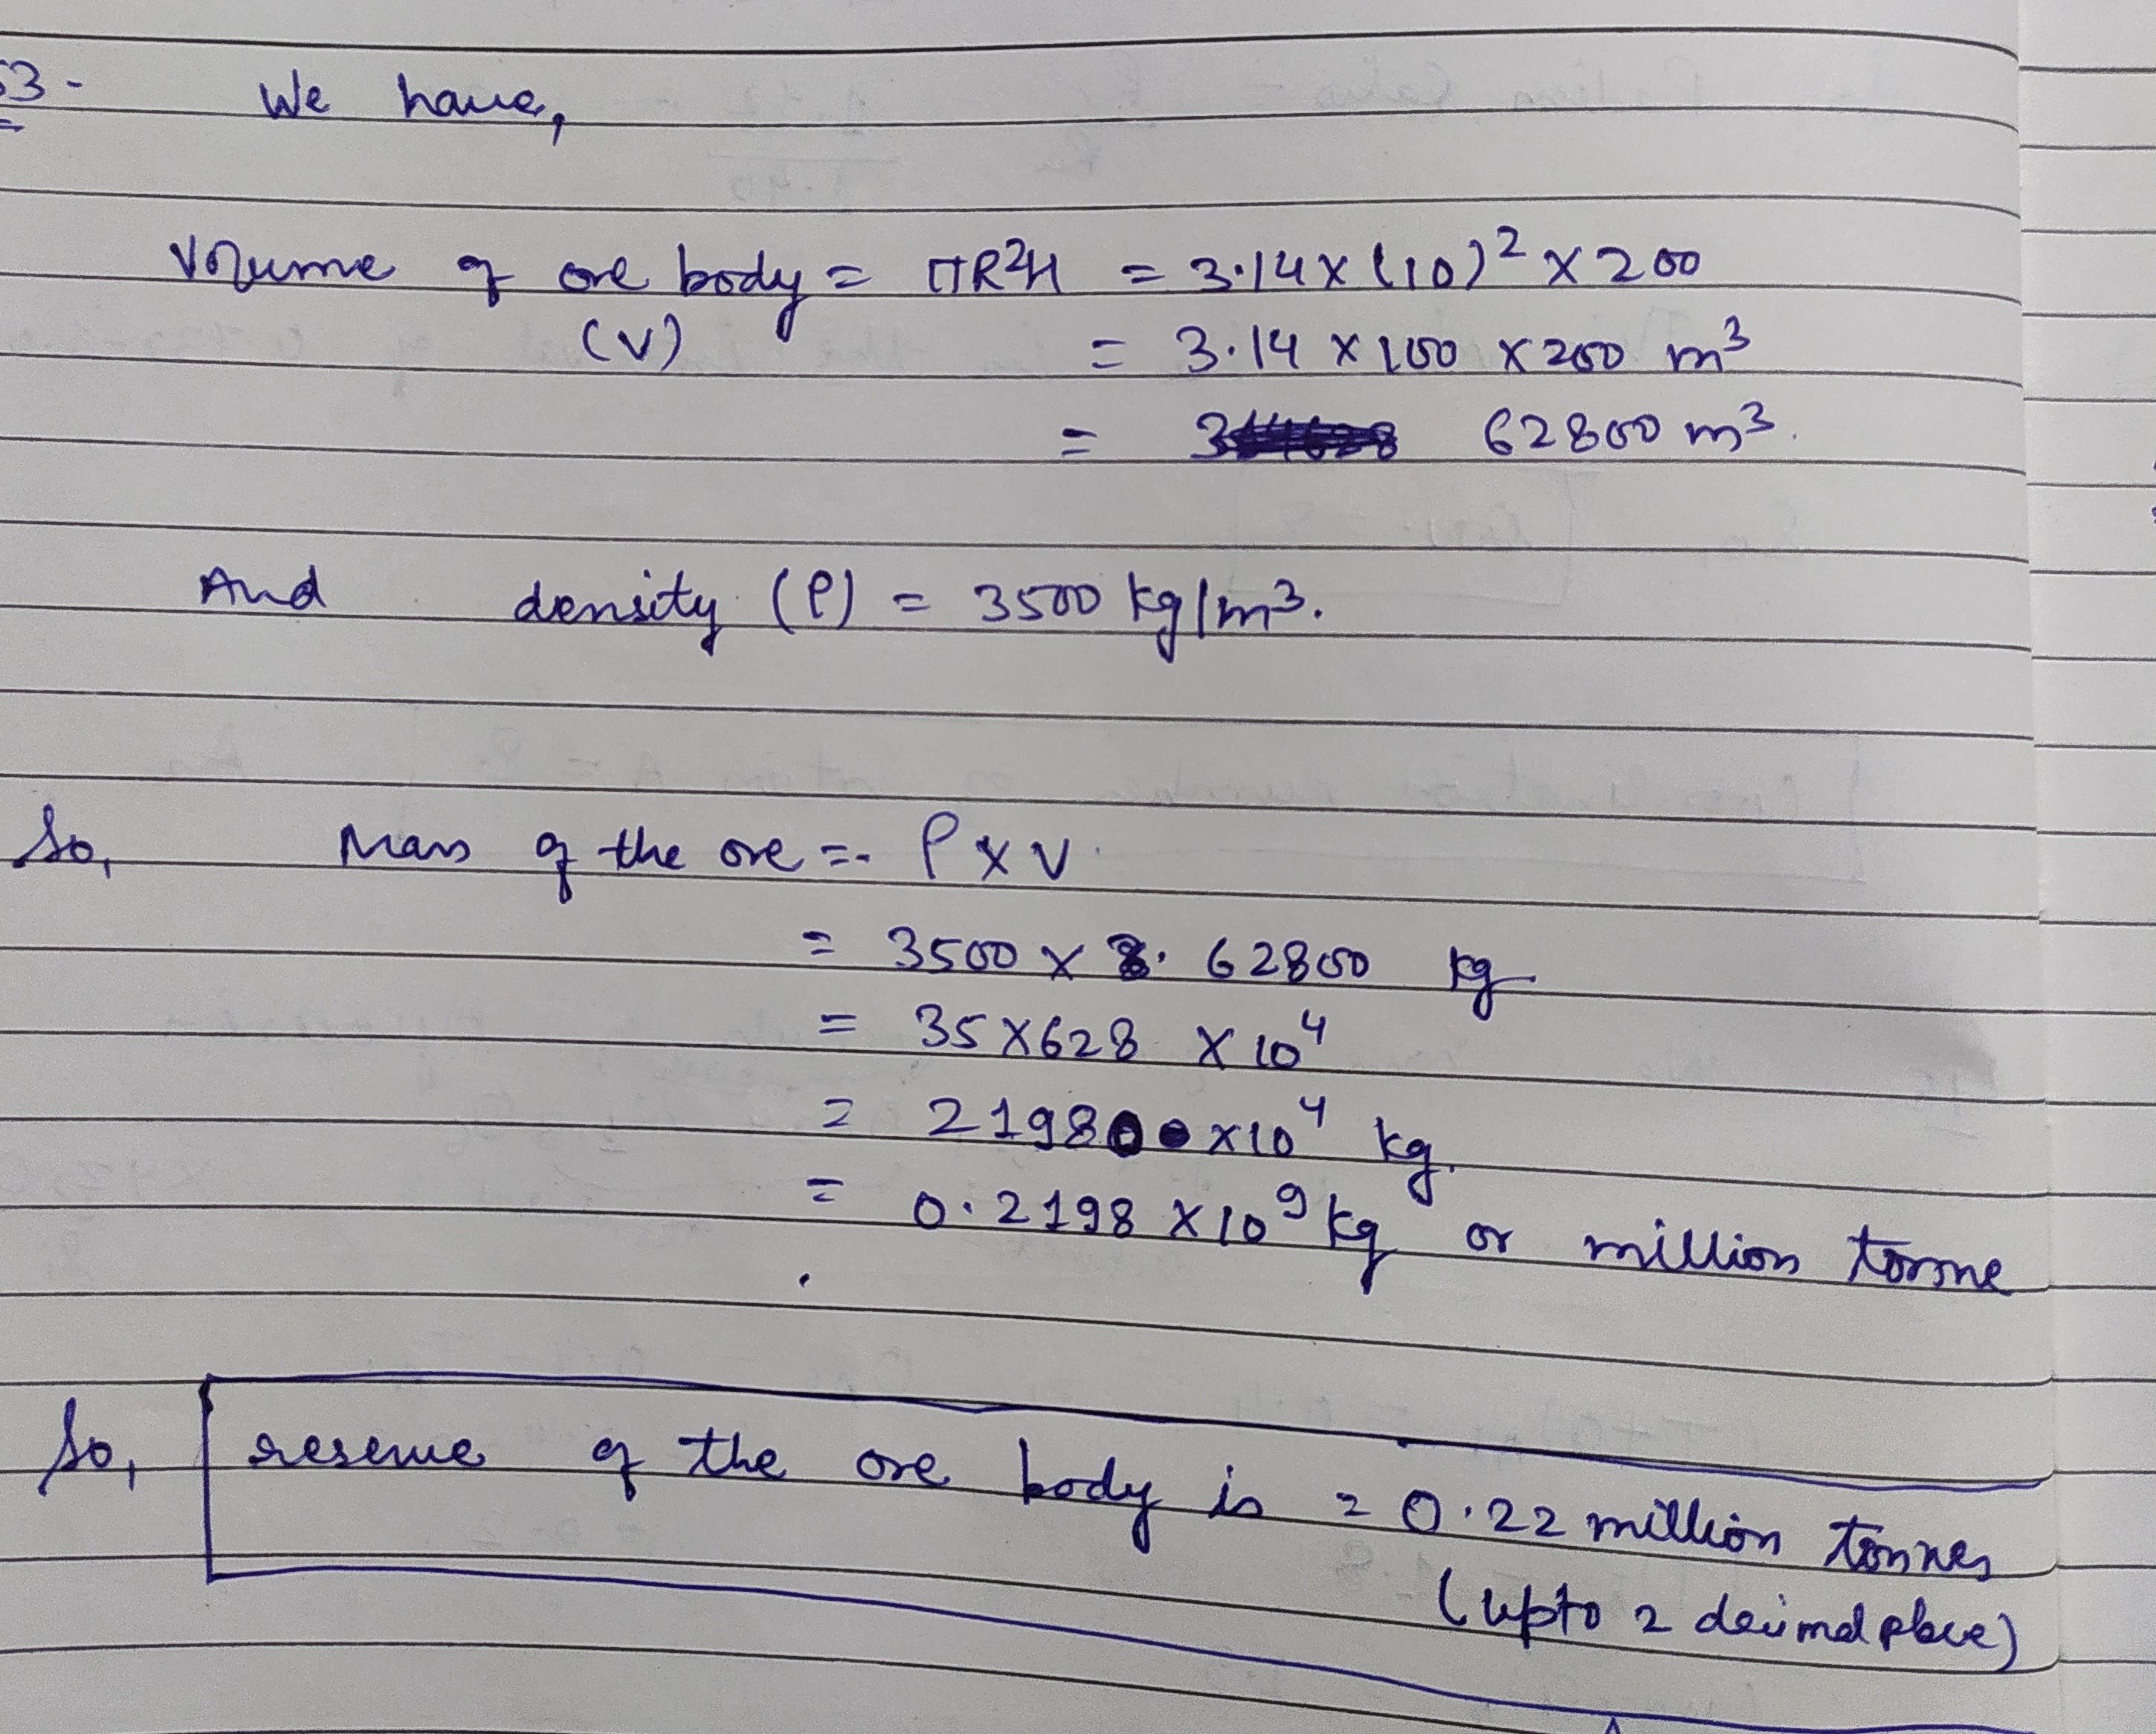 53- We have,
Volume of ore body = πR²H = 3.14 x (10)² x 200
(V) = 3.14 x 100 x 200 m³
= 62800 m³.
And density (ρ) = 3500 kg/m³.
So, Mass of the ore = ρ x V
= 3500 x 62800 kg
= 35 x 628 x 10⁴
= 21980 x 10⁴ kg.
= 0.2198 x 10⁹ kg or million tonne
So, reserve of the ore body is = 0.22 million tonnes
(upto 2 decimal place)